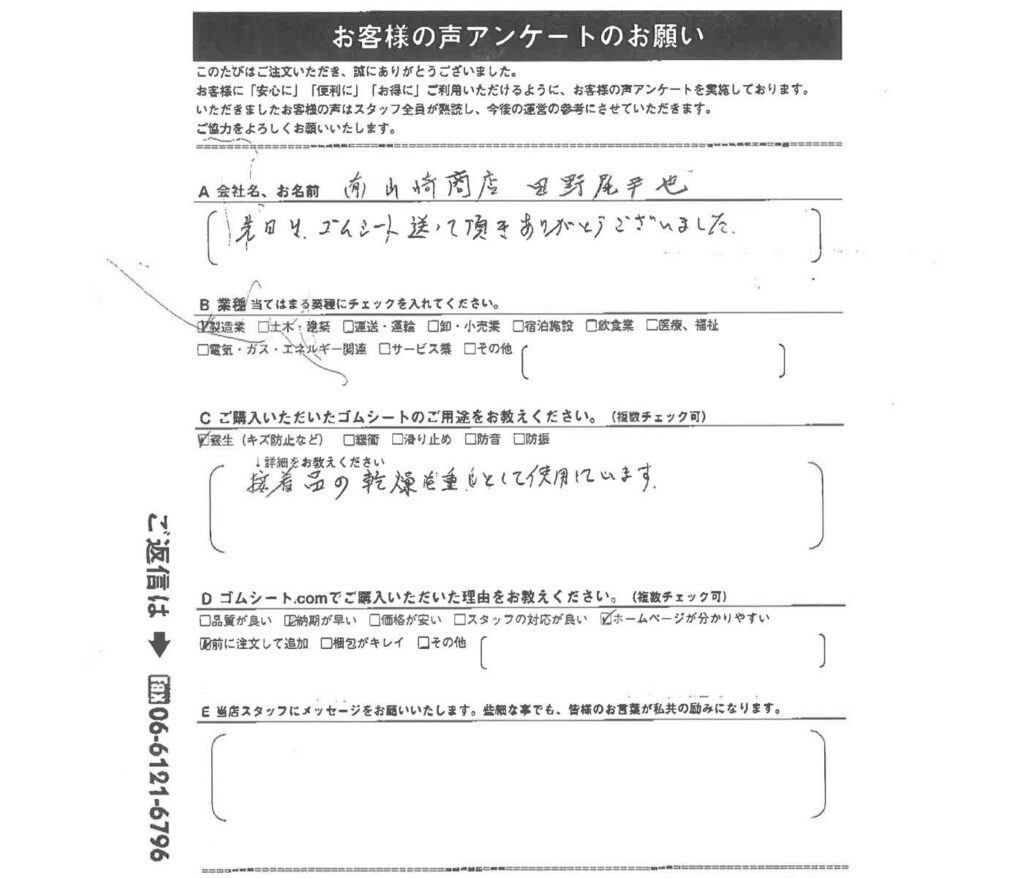 お客様の声アンケートのお願い
このたびはご注文いただき、誠にありがとうございました。
お客様に「安心に」「便利に」「お得に」ご利用いただけるように、お客様の声アンケートを実施しております。
いただきましたお客様の声はスタッフ全員が熟読し、今後の運営の参考にさせていただきます。
ご協力をよろしくお願いいたします。
A 会社名、お名前 (有)山崎商店 田野尾平也
先日は、ゴムシート送って頂きありがとうございました。
B 業種 当てはまる業種にチェックを入れてください。
☑製造業 □土木・建築 □運送・運輸 □卸・小売業 □宿泊施設 □飲食業 □医療、福祉
□電気・ガス・エネルギー関連 □サービス業 □その他
C ご購入いただいたゴムシートのご用途をお教えください。(複数チェック可)
☑養生(キズ防止など) □緩衝 □滑り止め □防音 □防振
↓詳細をお教えください
接着品の乾燥 重しとして使用しています。
D ゴムシート.comでご購入いただいた理由をお教えください。(複数チェック可)
□品質が良い ☑納期が早い □価格が安い □スタッフの対応が良い ☑ホームページが分かりやすい
☑前に注文して追加 □梱包がキレイ □その他
E 当店スタッフにメッセージをお願いいたします。些細な事でも、皆様のお言葉が私共の励みになります。
ご返信は ➡ FAX 06-6121-6796